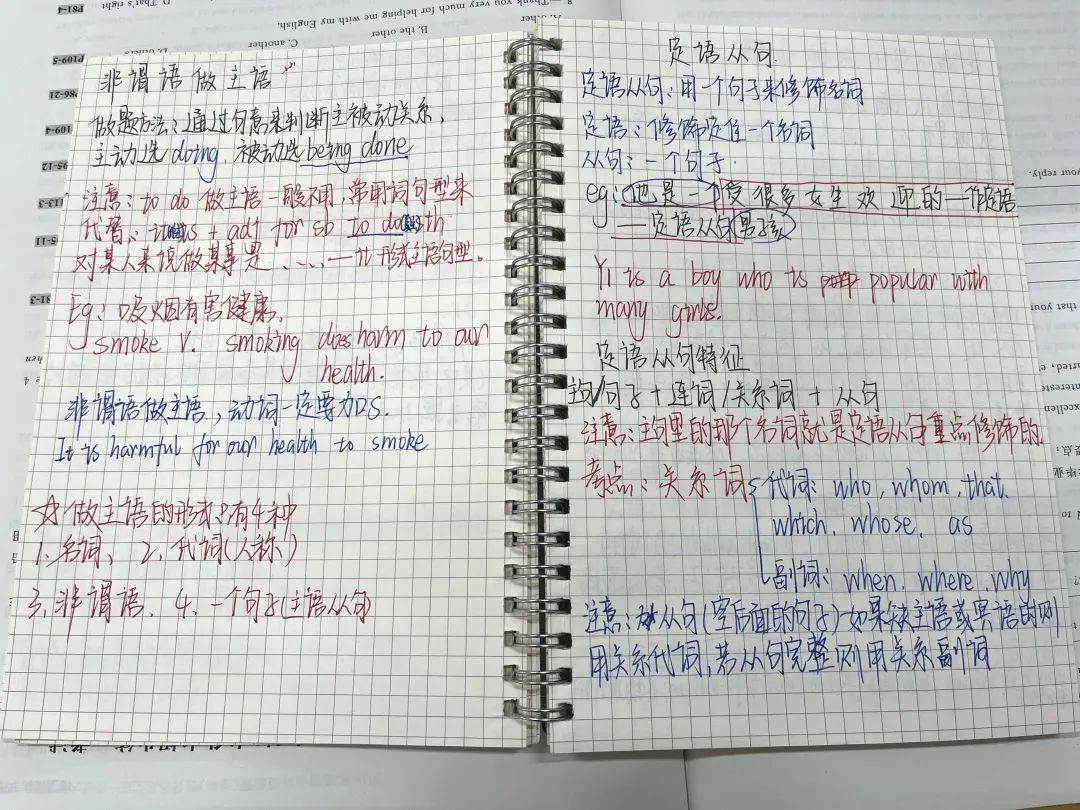 8. Thank you very much for helping me with my English.
D. That's right
A. other
B. the other
C. another
D. others
P81-4
P109-5
P86-21
109-4
95-12
113-3
5-11
81-3
非谓语做主语
做题方法:通过句意来判断主被动关系,
主动选 doing, 被动选 being done
注意: to do 做主语一般不用,常用词句型来
代替: it is + adj for sb to do sth
对某人来说做某事是……—it 形式主语句型。
Eg: 吸烟有害健康.
smoke v. smoking does harm to our
health.
非谓语做主语,动词一定要为DS.
It is harmful for our health to smoke
☆做主语的形式只有4种
1. 名词、 2、代词(人称)
3. 非谓语、 4、一个句子(主语从句)
定语从句
定语从句:用一个句子来修饰名词
定语:修饰定住一个名词
从句:一个句子.
eg: 他是一个受很多女生欢迎的—作定语
—定语从句 男孩
Yi is a boy who is popular with
many girls.
定语从句特征
主句/句子 + 连词/关系词 + 从句
注意:主句里的那个名词就是定语从句重点修饰的.
考点:关系词 代词: who, whom, that,
which, whose, as
副词: when, where, why
注意:从句(空后面的句子)如果缺主语或宾语时则
用关系代词,若从句完整则用关系副词